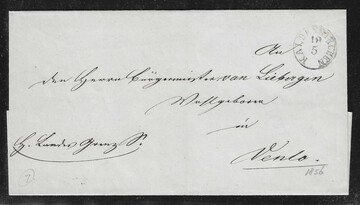 KALDENKIRCHEN
19
5
An
den Herrn Bürgermeister van Liebergen
Wohlgeboren
in
Venlo.
h. Landes Grenz S.
1856